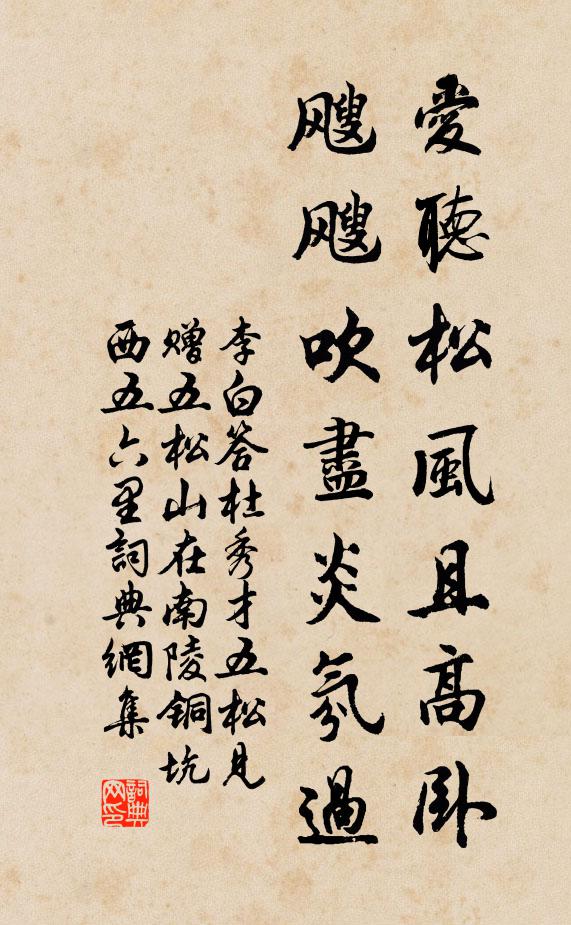 愛聽松風且高卧
颼颼吹盡炎氛過
李白答杜秀才五松見
赠五松山在南陵銅坑
西五六里詞典網集
詞典网印